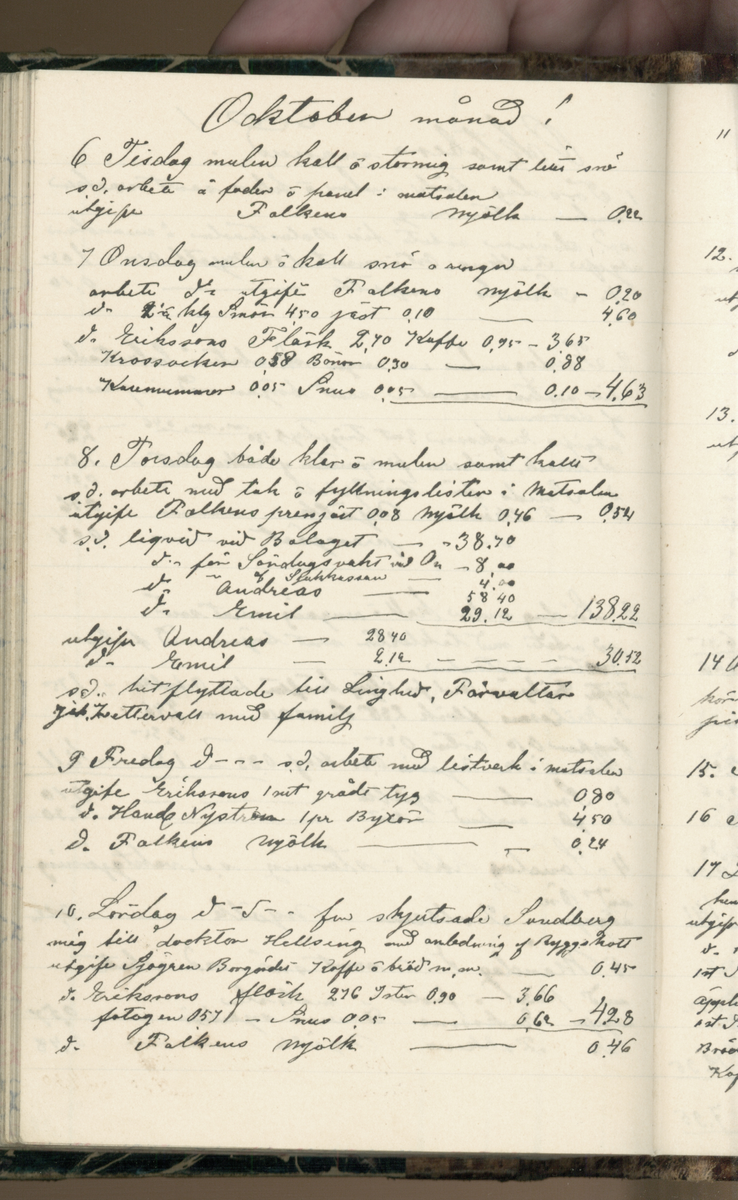 Ocktober månad !
6 Tisdag mulen kall ö stormig samt lite snö
s.d. arbete å foder ö panel i matsalen
utgift Falkens Mjölk — 0,22
7 Onsdag mulen ö kall snö o
arbete d:o utgift Falkens Mjölk - 0,20
d:o 2½ klg Smör 4.50 jäst 0,10 — 4,60
d. Erikssons Fläsk 2,70 Kaffe 0,95 - 3,65
Krossocker 0,58 Bönor 0,30 — 0,88
0,05 Snus 0,05 — 0,10 - 4,63
8. Torsdag både klar ö mulen samt kallt
s.d. arbete med tak ö fyllningslister i Matsalen
utgift Falkens 0,08 Mjölk 0,46 — 0,54
s.d. liqvid vid Bolaget — 38,70
d:o för Söndagsvakt vid On - 8,00
Sjukkassan — 4,00
d:o Andreas — 58 40
d:o Emil — 29,12 — 138,22
utgift Andreas — 28 40
d:o Emil — 2,12 - - - - 30,52
s.d. hitflyttade till Linghed, Förvaltar
Zettervall med familj
9 Fredag d - - - s.d. arbete med listverk i matsalen
utgift Erikssons 1 mt grått tyg — 0,80
d. Handl Nyström 1 pr Byxor — 4,50
d. Falkens Mjölk — 0,24
10. Lördag d - s - - fm skjutsade Sundberg
mig till docktor Hellsing med anledning af Ryggskott
utgift Sjögren Borgärdet Kaffe ö bröd m.m. — 0,45
d. Erikssons fläsk 2,76 Ister 0,90 — 3,66
fotogen 0,57 - Snus 0,05 — 0,62 — 4,28
d. Falkens Mjölk — 0,46
11
12.
13.
14
15.
16
17